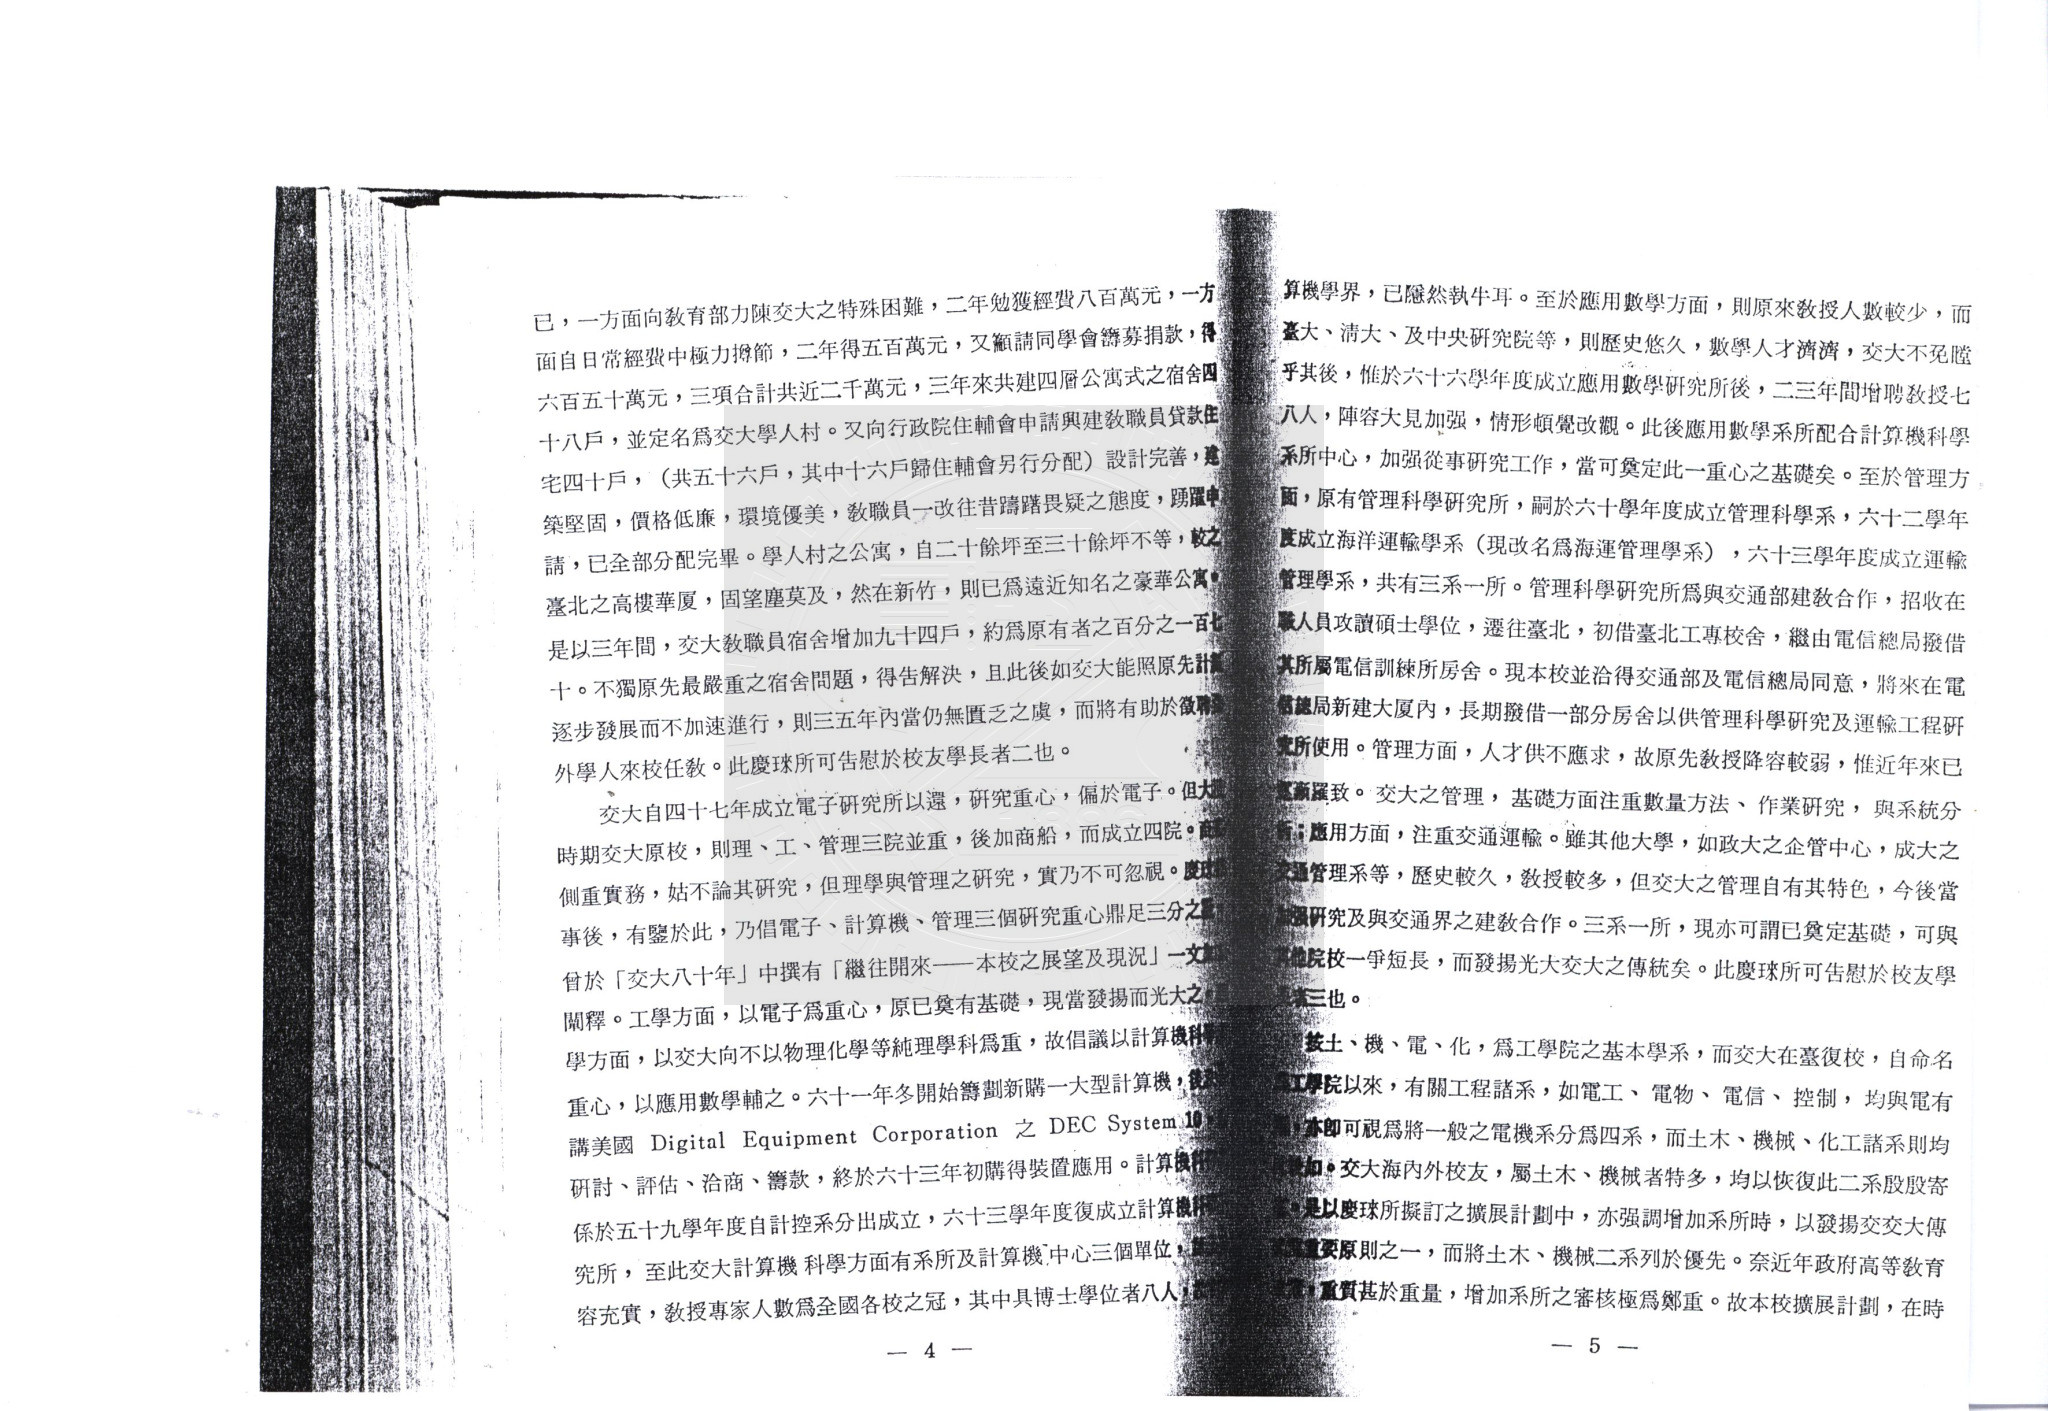 已，一方面向敎育部力陳交大之特殊困難，二年勉獲經費八百萬元，一方
面自日常經費中極力撙節，二年得五百萬元，又籲請同學會籌募捐款，得
六百五十萬元，三項合計共近二千萬元，三年來共建四層公寓式之宿舍四
十八戶，並定名爲交大學人村。又向行政院住輔會申請興建敎職員貸款住
宅四十戶，（共五十六戶，其中十六戶歸住輔會另行分配）設計完善，建
築堅固，價格低廉，環境優美，敎職員一改往昔躊躇畏疑之態度，踴躍申
請，已全部分配完畢。學人村之公寓，自二十餘坪至三十餘坪不等，較之
臺北之高樓華厦，固望塵莫及，然在新竹，則已爲遠近知名之豪華公寓。
是以三年間，交大敎職員宿舍增加九十四戶，約爲原有者之百分之一百七
十。不獨原先最嚴重之宿舍問題，得吿解決，且此後如交大能照原先計劃
逐步發展而不加速進行，則三五年內當仍無匱乏之虞，而將有助於徵聘
外學人來校任敎。此慶琜所可吿慰於校友學長者二也。
交大自四十七年成立電子研究所以還，研究重心，偏於電子。但大
時期交大原校，則理、工、管理三院並重，後加商船，而成立四院。
側重實務，姑不論其研究，但理學與管理之研究，實乃不可忽視。慶琜
事後，有鑒於此，乃倡電子、計算機、管理三個研究重心鼎足三分之
曾於「交大八十年」中撰有「繼往開來——本校之展望及現況」一文
闡釋。工學方面，以電子爲重心，原已奠有基礎，現當發揚而光大之，
學方面，以交大向不以物理化學等純理學科爲重，故倡議以計算機科
重心，以應用數學輔之。六十一年冬開始籌劃新購一大型計算機，
講美國 Digital Equipment Corporation 之 DEC System 10，
研討、評估、洽商、籌款，終於六十三年初購得裝置應用。計算機科
係於五十九學年度自計控系分出成立，六十三學年度復成立計算機科
究所，至此交大計算機科學方面有系所及計算機中心三個單位，
容充實，敎授專家人數爲全國各校之冠，其中具博士學位者八人，
— 4 —
算機學界，已隱然執牛耳。至於應用數學方面，則原來敎授人數較少，而
臺大、淸大、及中央研究院等，則歷史悠久，數學人才濟濟，交大不免瞠
乎其後，惟於六十六學年度成立應用數學研究所後，二三年間增聘敎授七
八人，陣容大見加强，情形頓覺改觀。此後應用數學系所配合計算機科學
系所中心，加强從事研究工作，當可奠定此一重心之基礎矣。至於管理方
面，原有管理科學研究所，嗣於六十學年度成立管理科學系，六十二學年
度成立海洋運輸學系（現改名爲海運管理學系），六十三學年度成立運輸
管理學系，共有三系一所。管理科學研究所爲與交通部建敎合作，招收在
職人員攻讀碩士學位，遷往臺北，初借臺北工專校舍，繼由電信總局撥借
其所屬電信訓練所房舍。現本校並洽得交通部及電信總局同意，將來在電
信總局新建大厦內，長期撥借一部分房舍以供管理科學研究及運輸工程研
究所使用。管理方面，人才供不應求，故原先敎授陣容較弱，惟近年來已
羅致。交大之管理，基礎方面注重數量方法、作業研究，與系統分
析；應用方面，注重交通運輸。雖其他大學，如政大之企管中心，成大之
交通管理系等，歷史較久，敎授較多，但交大之管理自有其特色，今後當
加强研究及與交通界之建敎合作。三系一所，現亦可謂已奠定基礎，可與
其他院校一爭短長，而發揚光大交大之傳統矣。此慶琜所可吿慰於校友學
長者三也。
按土、機、電、化，爲工學院之基本學系，而交大在臺復校，自命名
爲工學院以來，有關工程諸系，如電工、電物、電信、控制，均與電有
，亦卽可視爲將一般之電機系分爲四系，而土木、機械、化工諸系則均
如。交大海內外校友，屬土木、機械者特多，均以恢復此二系殷殷寄
。是以慶琜所擬訂之擴展計劃中，亦强調增加系所時，以發揚交交大傳
重要原則之一，而將土木、機械二系列於優先。奈近年政府高等敎育
，重質甚於重量，增加系所之審核極爲鄭重。故本校擴展計劃，在時
— 5 —